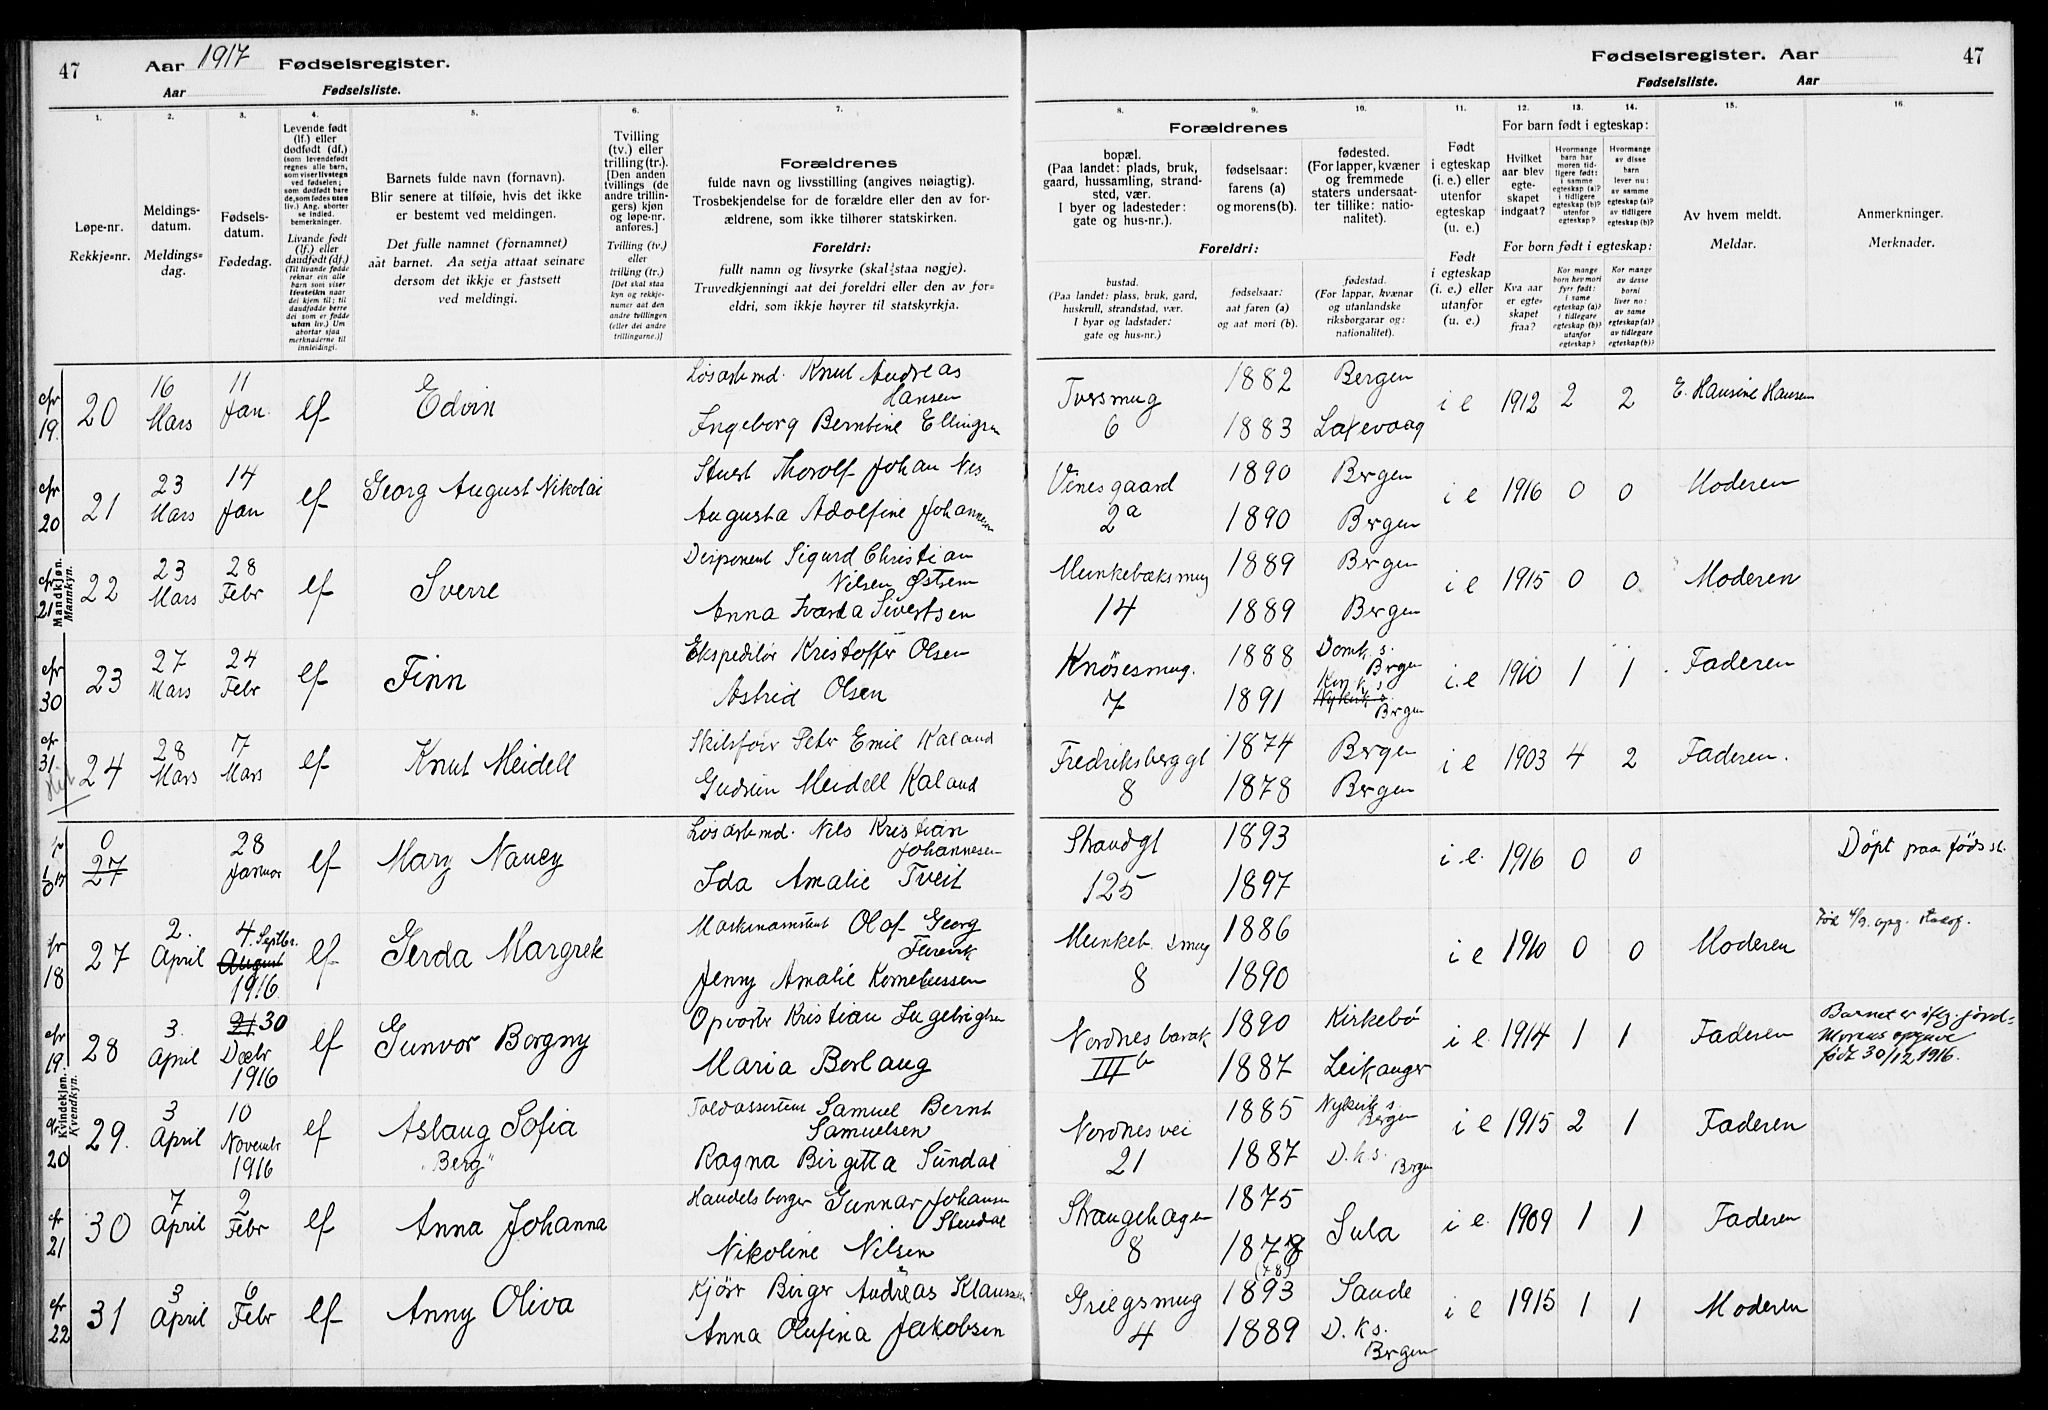 47 Aar 1917 Fødselsregister.
Aar Fødselsliste.
Fødselsregister. Aar 47
Fødselsliste. Aar
1. Løpe-nr. Rekkje-nr.
2. Meldings-datum. Meldings-dag.
3. Fødsels-datum. Fødedag.
4. Levende født (lf.) eller dødfødt (df.)
5. Barnets fulde navn (fornavn).
Blir senere at tilføie, hvis det ikke
er bestemt ved meldingen.
Det fulle namnet (fornamnet)
aat barnet. Aa setja attaat seinare
dersom det ikkje er fastsett
ved meldingi.
6. Tvilling (tv.) eller trilling (tr.).
[Den anden tvillings (de andre trillingers) kjøn og løpe-nr. anføres.]
7. Forældrenes
fulde navn og livsstilling (angives nøiagtig).
Trosbekjendelse for de forældre eller den av forældrene, som ikke tilhører statskirken.
Foreldri:
fullt namn og livsyrke (skal staa nøgje).
Truvedkjenningi aat dei foreldri eller den av foreldri, som ikkje høyrer til statskyrkja.
Forældrenes
8. bopæl.
(Paa landet: plads, bruk, gaard, hussamling, strandsted, vær.
I byer og ladesteder: gate og hus-nr.).
Foreldri:
bustad.
(Paa landet: plass, bruk, gard, huskrull, strandstad, vær.
I byar og ladstader: gate og hus-nr.)
9. fødselsaar: farens (a) og morens (b).
fødselsaar: aat faren (a) og aat mori (b).
10. fødested.
(For lapper, kvæner og fremmede staters undersaatter tillike: nationalitet).
fødestad.
(For lappar, kvænar og utanlandske riksborgarar og: nationalitet).
11. Født i egteskap (i. e.) eller utenfor egteskap (u. e.)
Født i egteskap (i. e.) eller utanfor egteskap (u. e.)
For barn født i egteskap:
12. Hvilket aar blev egteskapet indgaat?
For born født i egteskap:
Kva aar er egteskapet fraa?
13.
14.
15. Av hvem meldt. Meldar.
16. Anmerkninger. Merknader.
Mandkjøn. Mannkyn.
cfr 19. 20 16 Mars 11 Jan. lf Edvin Løsarbmd. Knut Andreas Hansen Ingeborg Berntine Ellingsen Tversmug 6 1882 1883 Bergen Laxevaag i e 1912 2 2 E. Hansine Hansen
cfr 20 21 23 Mars 14 Jan lf Georg August Nikolai Stuert Thorolf Johan Nes Augusta Adolfine Johannesen Vinesgaard 2a 1890 1890 Bergen Bergen i e 1916 0 0 Moderen
cfr 21 22 23 Mars 28 Febr lf Sverre Disponent Sigurd Christian Nilsen Østrem Anna Sivertsen Munkebæksmug 14 1889 1889 Bergen Bergen i e 1915 0 0 Moderen
cfr 30 23 27 Mars 24 Febr lf Finn Ekspeditør Kristoffer Olsen Astrid Olsen Knøsesmug. 7 1888 1891 Domk. s. Bergen Kors k s Nykirk s. Bergen i. e 1910 1 1 Faderen
cfr 31. 24 28 Mars 7 Mars lf Knut Meidell Peter Emil Kaland Gudrun Meidell Kaland Fredriksberggt 8 1874 1878 Bergen Bergen i e 1903 4 2 Faderen.
Kvindekjøn. Kvendkyn.
0 27 28 Januar lf Mary Nancy Løsarbmd. Nils Kristian Johannesen Ida Amalie Tveit Strandgt 125 1893 1897 i. e. 1916 0 0 Døpt paa føds st.
cfr 18 27 2. April 4. Septbr. August 1916 lf Gerda Margrete Maskinassistent Olof Georg Jenny Amalie Korneliussen Munkeb. smug 8 1886 1890 i e 1910 0 0 Moderen Fød 4/9. opg.
cfr 19. 28 3. April 21 30 Decbr 1916 lf Gunvor Borgny Opvarter Kristian Ingebrigtsen Maria Borlaug Nordnesbarak III b 1890 1887 Kirkebø Leikanger i e 1914 1 1 Faderen Barnet er iflg. jord- Morens opgave født 30/12 1916.
cfr 20 29. 3 April 10 Novembr 1916 lf Aslaug Sofia "Berg" Toldassistent Samuel Bernt Samuelsen Ragna Birgitta Sundal Nordnesvei 21 1885 1887 Nykirk s. Bergen D. k s. Bergen i e 1915 2 1 Faderen
cfr 21 30 7 April 2 Febr lf Anna Johanna Handelsborger Gunnar Johansen Stendal Nikoline Nilsen Strangehagen 8 1875 1878 (78) Sula i e. 1909 1 1 Faderen
cfr 22 31 3 April 6 Febr lf Anny Oliva Kjører Birger Andreas Klaussen Anna Olufina Jakobsen Griegsmug 4 1893 1889 Sande D. k s. Bergen i e 1915 1 1 Moderen